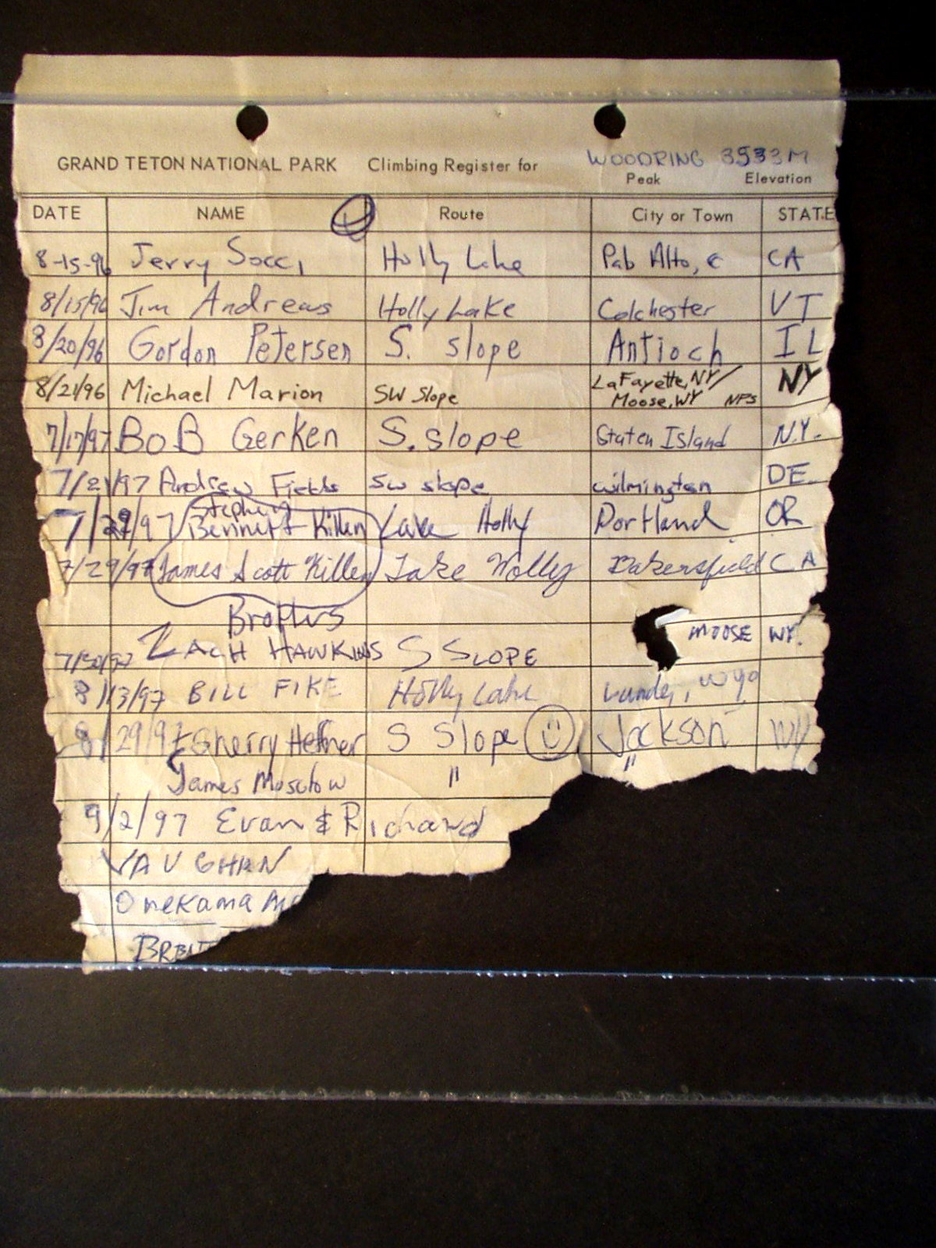 GRAND TETON NATIONAL PARK Climbing Register for WOODRING 3533M
Peak Elevation
DATE NAME Route City or Town STATE
8-15-96 Jerry Socci Holly Lake Palo Alto, c CA
8/15/96 Jim Andrews Holly Lake Colchester VT
8/20/96 Gordon Petersen S. slope Antioch IL
8/21/96 Michael Marion SW Slope LaFayette, NY/ Moose, WY NPS NY
7/17/97 BoB Gerken S. slope Staten Island N.Y.
7/21/97 Andrew Fields SW slope Wilmington DE
Stephen
7/29/97 Bennett Killen Lake Holly Portland OR
7/29/97 James Scott Killen Lake Holly Bakersfield CA
7/30/97 ZACH HAWKINS S SLOPE MOOSE WY.
8/13/97 BILL FIKE Holly Lake Lander, Wyo
8/29/97 Sherry Heffner S Slope Jackson WY
James " "
9/2/97 Evan & Richard
VAUGHAN
Onekama